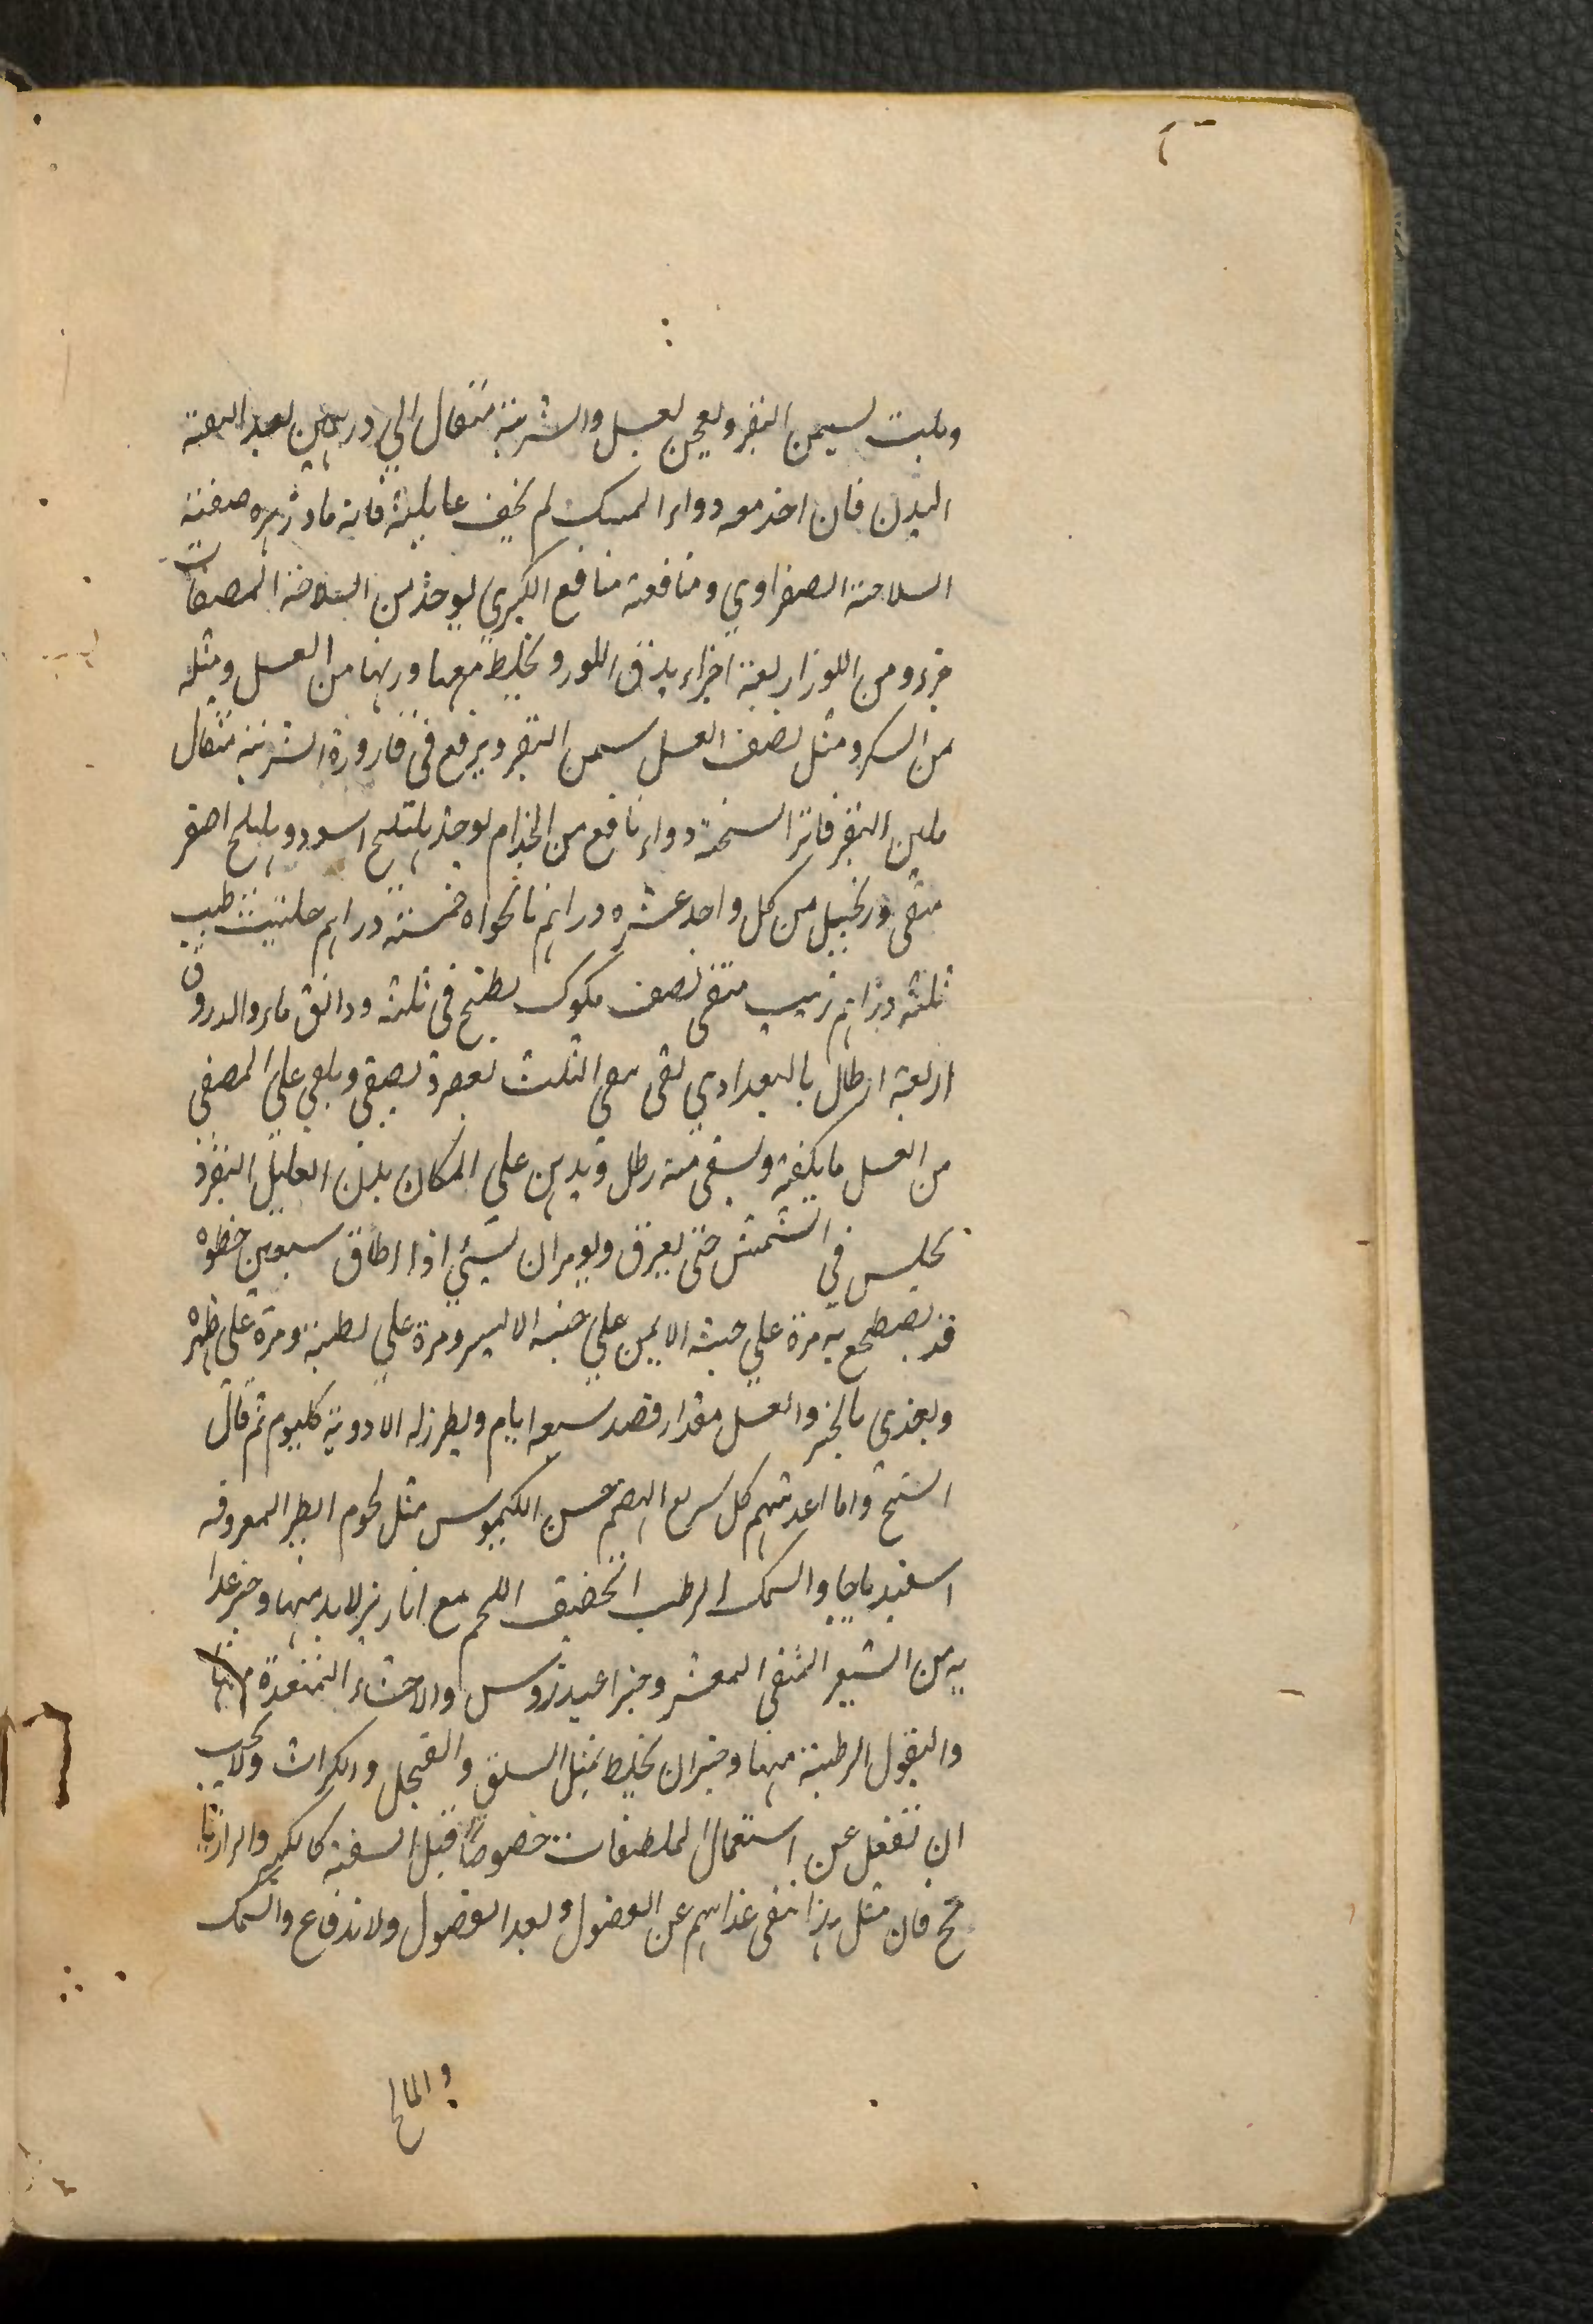 ويلت بسمن البقر ويعجن بعسل والشربة مثقال الي درهمين بعد البقية
البدن فان اخذ معه دواء المسك لم يخف عايلته فانه مادزهره صفته
السلاخة الصفراوي ومنافعه منافع الكبري يوخذ من السلاخة المصفات
جزء ومن اللوز اربعة اجزاء يدق اللوز ويخلط معها وزنها من العسل ومثله
من السكر ومثل نصف العسل سمن البقر ويرفع في قارورة الشربة مثقال
بلبن البقر فاتر السخنة دواء نافع من الجذام يوخذ هليلج اسود وهليلج اصفر
منقى وزنجبيل من كل واحد عشره دراهم نانخواه خمسة دراهم حلتيت طيب
ثلثة دراهم زبيب منقى نصف مكوك يطبخ في ثلثة ودانق ماء والدورق
اربعة ارطال بالبغدادي تقى يبقى الثلث يعصر ويصفى ويلقى على المصفى
من العسل ما يكفيه ويسقى منه رطل ويدهن على المكان بلبن العليل البقر ذ
يجلس في الشمس حتى يعرق ويومر ان يسئي اذا اطاق سبعين خطوه
قد يضطجع به مرة علي جنبه الايمن علي جنبه الايسر ومرة علي بطنه ومرة على ظهره
ويغذى بالخبز والعسل مقدار قصد سبعه ايام ويطرز له الادوية كليوم ثم قال
الشيخ واما اغذيتهم كل سريع الهضم حسن الكيموس مثل لحوم الطير المعروفه
اسفيدباجا والسمك الرطب الخفيف اللحم مع ابازير لا بد منها وخير غذا
به من الشعير المنقى المقشر وخبز اعيدروس والاحشاء المتخذة منها
والبقول الرطبة منها وخير ان يخلط بمثل السلق والفجل والكراث ولا يجب
ان تغفل عن استعمال الملطفات خصوصا قبل السفنه كالكبر والرازيا
نج فان مثل هذا ينقى غذاهم عن الفضول ويعد الفضول ولاندفاع والسمك
والمالح